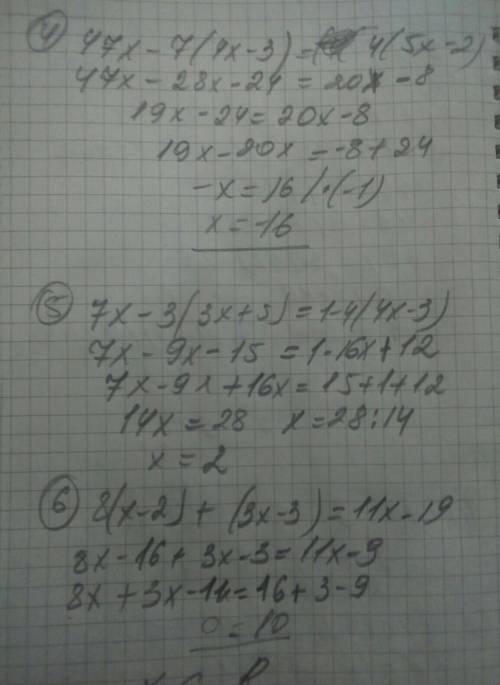 ④ 47x - 7(4x-3) = 4(5x-2)
47x - 28x - 24 = 20x - 8
19x - 24 = 20x - 8
19x - 20x = -8 + 24
-x = 16 / · (-1)
x = -16
⑤ 7x - 3(3x+5) = 1-4(4x-3)
7x - 9x - 15 = 1-16x+12
7x - 9x + 16x = 15+1+12
14x = 28 x = 28:14
x = 2
⑥ 8(x-2) + (3x-3) = 11x-19
8x-16 + 3x-3 = 11x-9
8x + 3x - 11x = 16+3-9
0 = 10